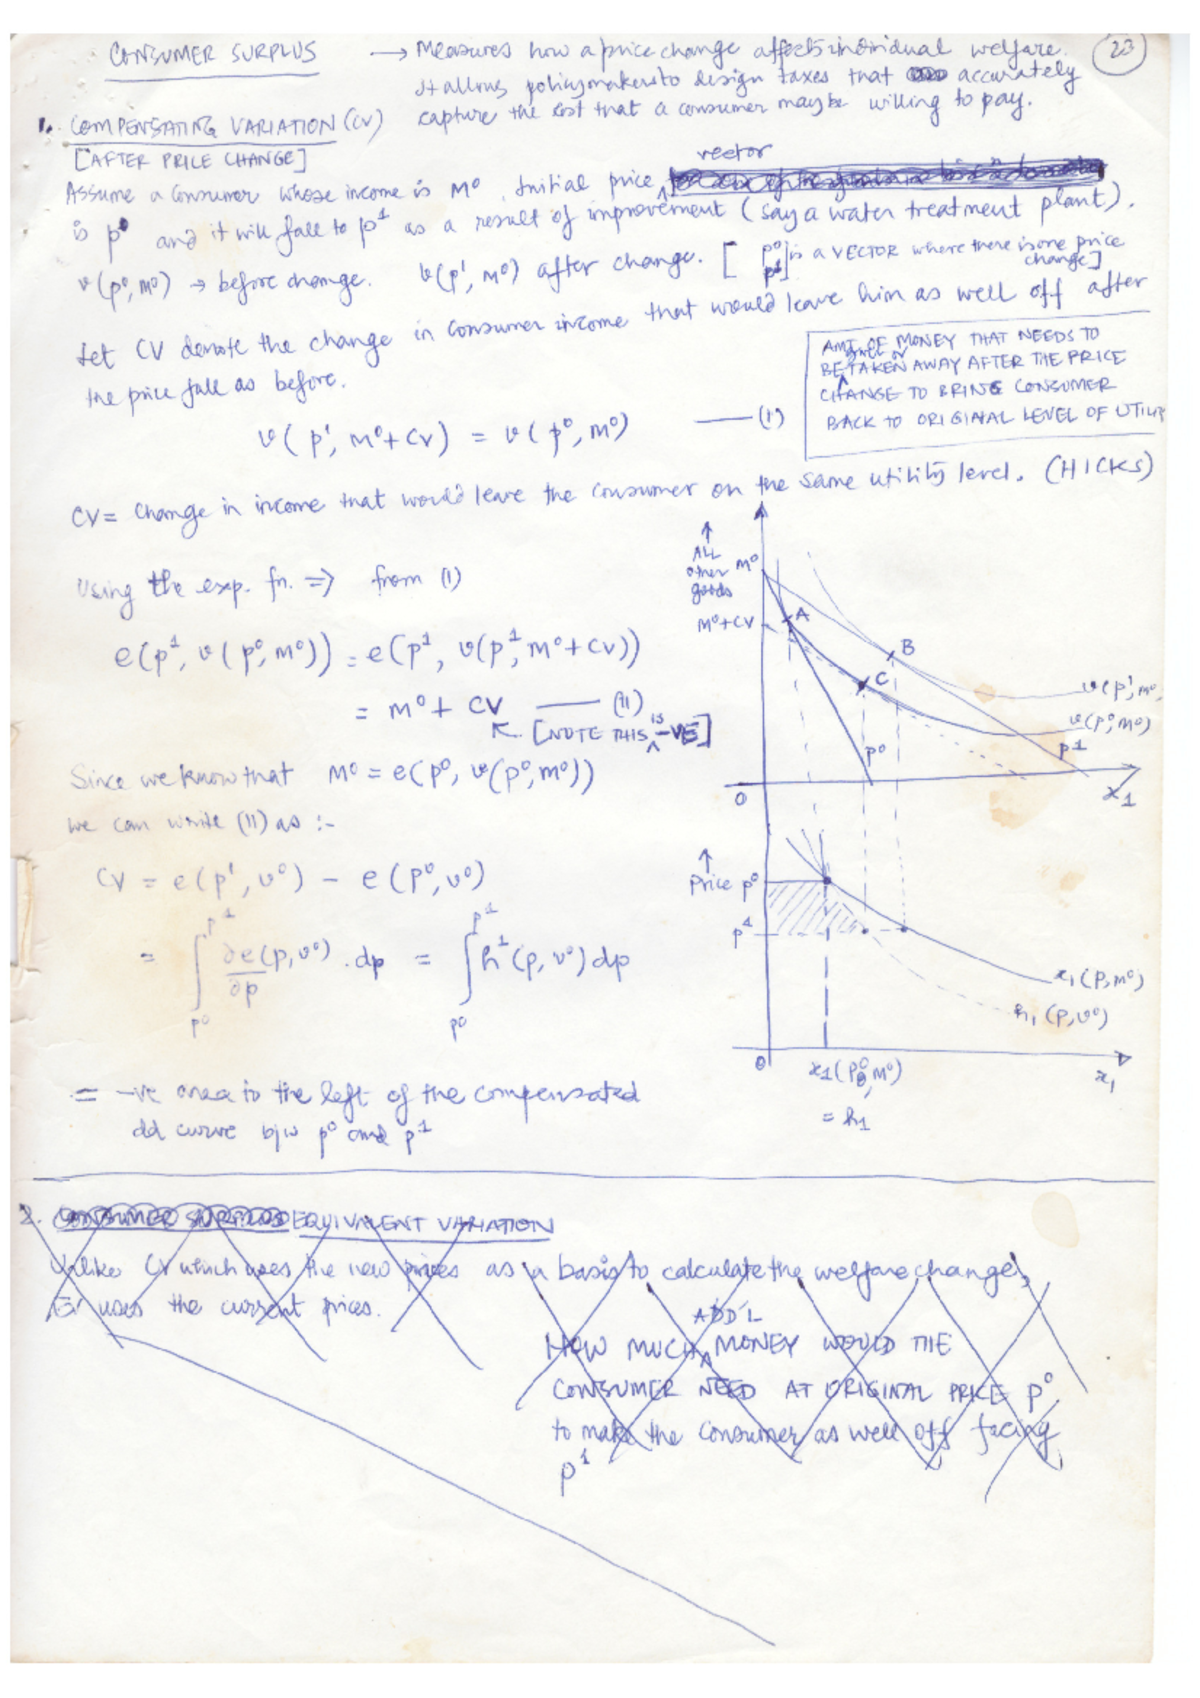 CONSUMER SURPLUS → Measures how a price change affects individual welfare. 23
It allows policymakers to design taxes that accurately
capture the cost that a consumer may be willing to pay.
1. COMPENSATING VARIATION (CV)
[AFTER PRICE CHANGE]
Assume a consumer whose income is M⁰. Initial price vector
is p⁰ and it will fall to p¹ as a result of improvement (say a water treatment plant).
v(p⁰, m⁰) → before change. v(p¹, m⁰) after change. [p⁰ p¹] is a VECTOR where there is one price change]
Let CV denote the change in consumer income that would leave him as well off after
the price fall as before.
AMT OF MONEY THAT NEEDS TO
BE GIVEN OR TAKEN AWAY AFTER THE PRICE
CHANGE TO BRING CONSUMER
BACK TO ORIGINAL LEVEL OF UTILITY
v(p¹, m⁰+CV) = v(p⁰, m⁰) —— (1)
CV = Change in income that would leave the consumer on the same utility level. (HICKS)
Using the exp. fn. ⇒ from (1)
e(p¹, v(p⁰, m⁰)) = e(p¹, v(p¹, m⁰+CV))
= m⁰ + CV —— (11)
↖ [NOTE THIS IS -VE]
Since we know that M⁰ = e(p⁰, v(p⁰, m⁰))
we can write (11) as :-
CV = e(p¹, v⁰) - e(p⁰, v⁰)
= ∫ p⁰ p¹ ∂e(p, v⁰)/∂p . dp = ∫ p⁰ p¹ h¹(p, v⁰) dp
= -ve area to the left of the compensated
dd curve b/w p⁰ and p¹
↑
ALL
other
goods
M⁰
M⁰+CV
A
B
C
v(p¹, m⁰)
v(p⁰, m⁰)
p⁰
p¹
0
x₁
↑
Price p⁰
p¹
x₁(p, m⁰)
h₁(p, v⁰)
0
x₁(p⁰, m⁰)
= h₁
x₁
2. CONSUMER SURPLUS EQUIVALENT VARIATION
Unlike CV which uses the new prices as a basis to calculate the welfare change,
EV uses the current prices.
HOW MUCH ADD'L MONEY WOULD THE
CONSUMER NEED AT ORIGINAL PRICE p⁰
to make the consumer as well off facing
p¹